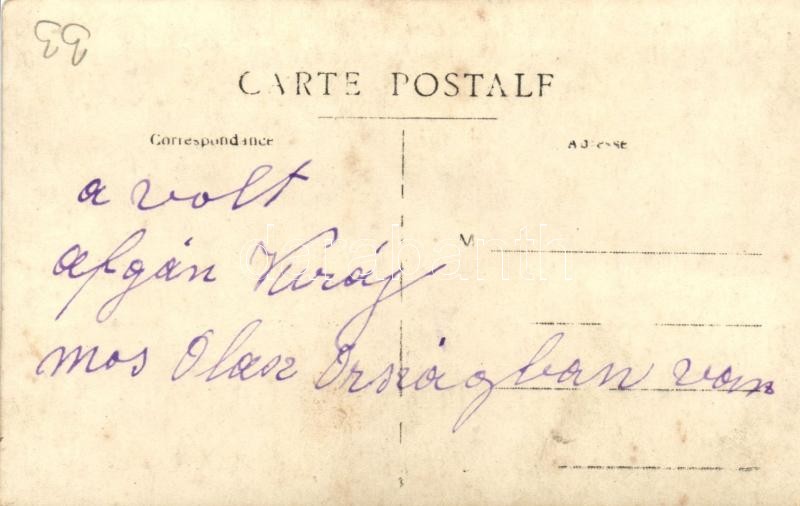 CARTE POSTALE
Correspondance
Adresse
a volt
afgán Király
M
mos Olasz Országban van